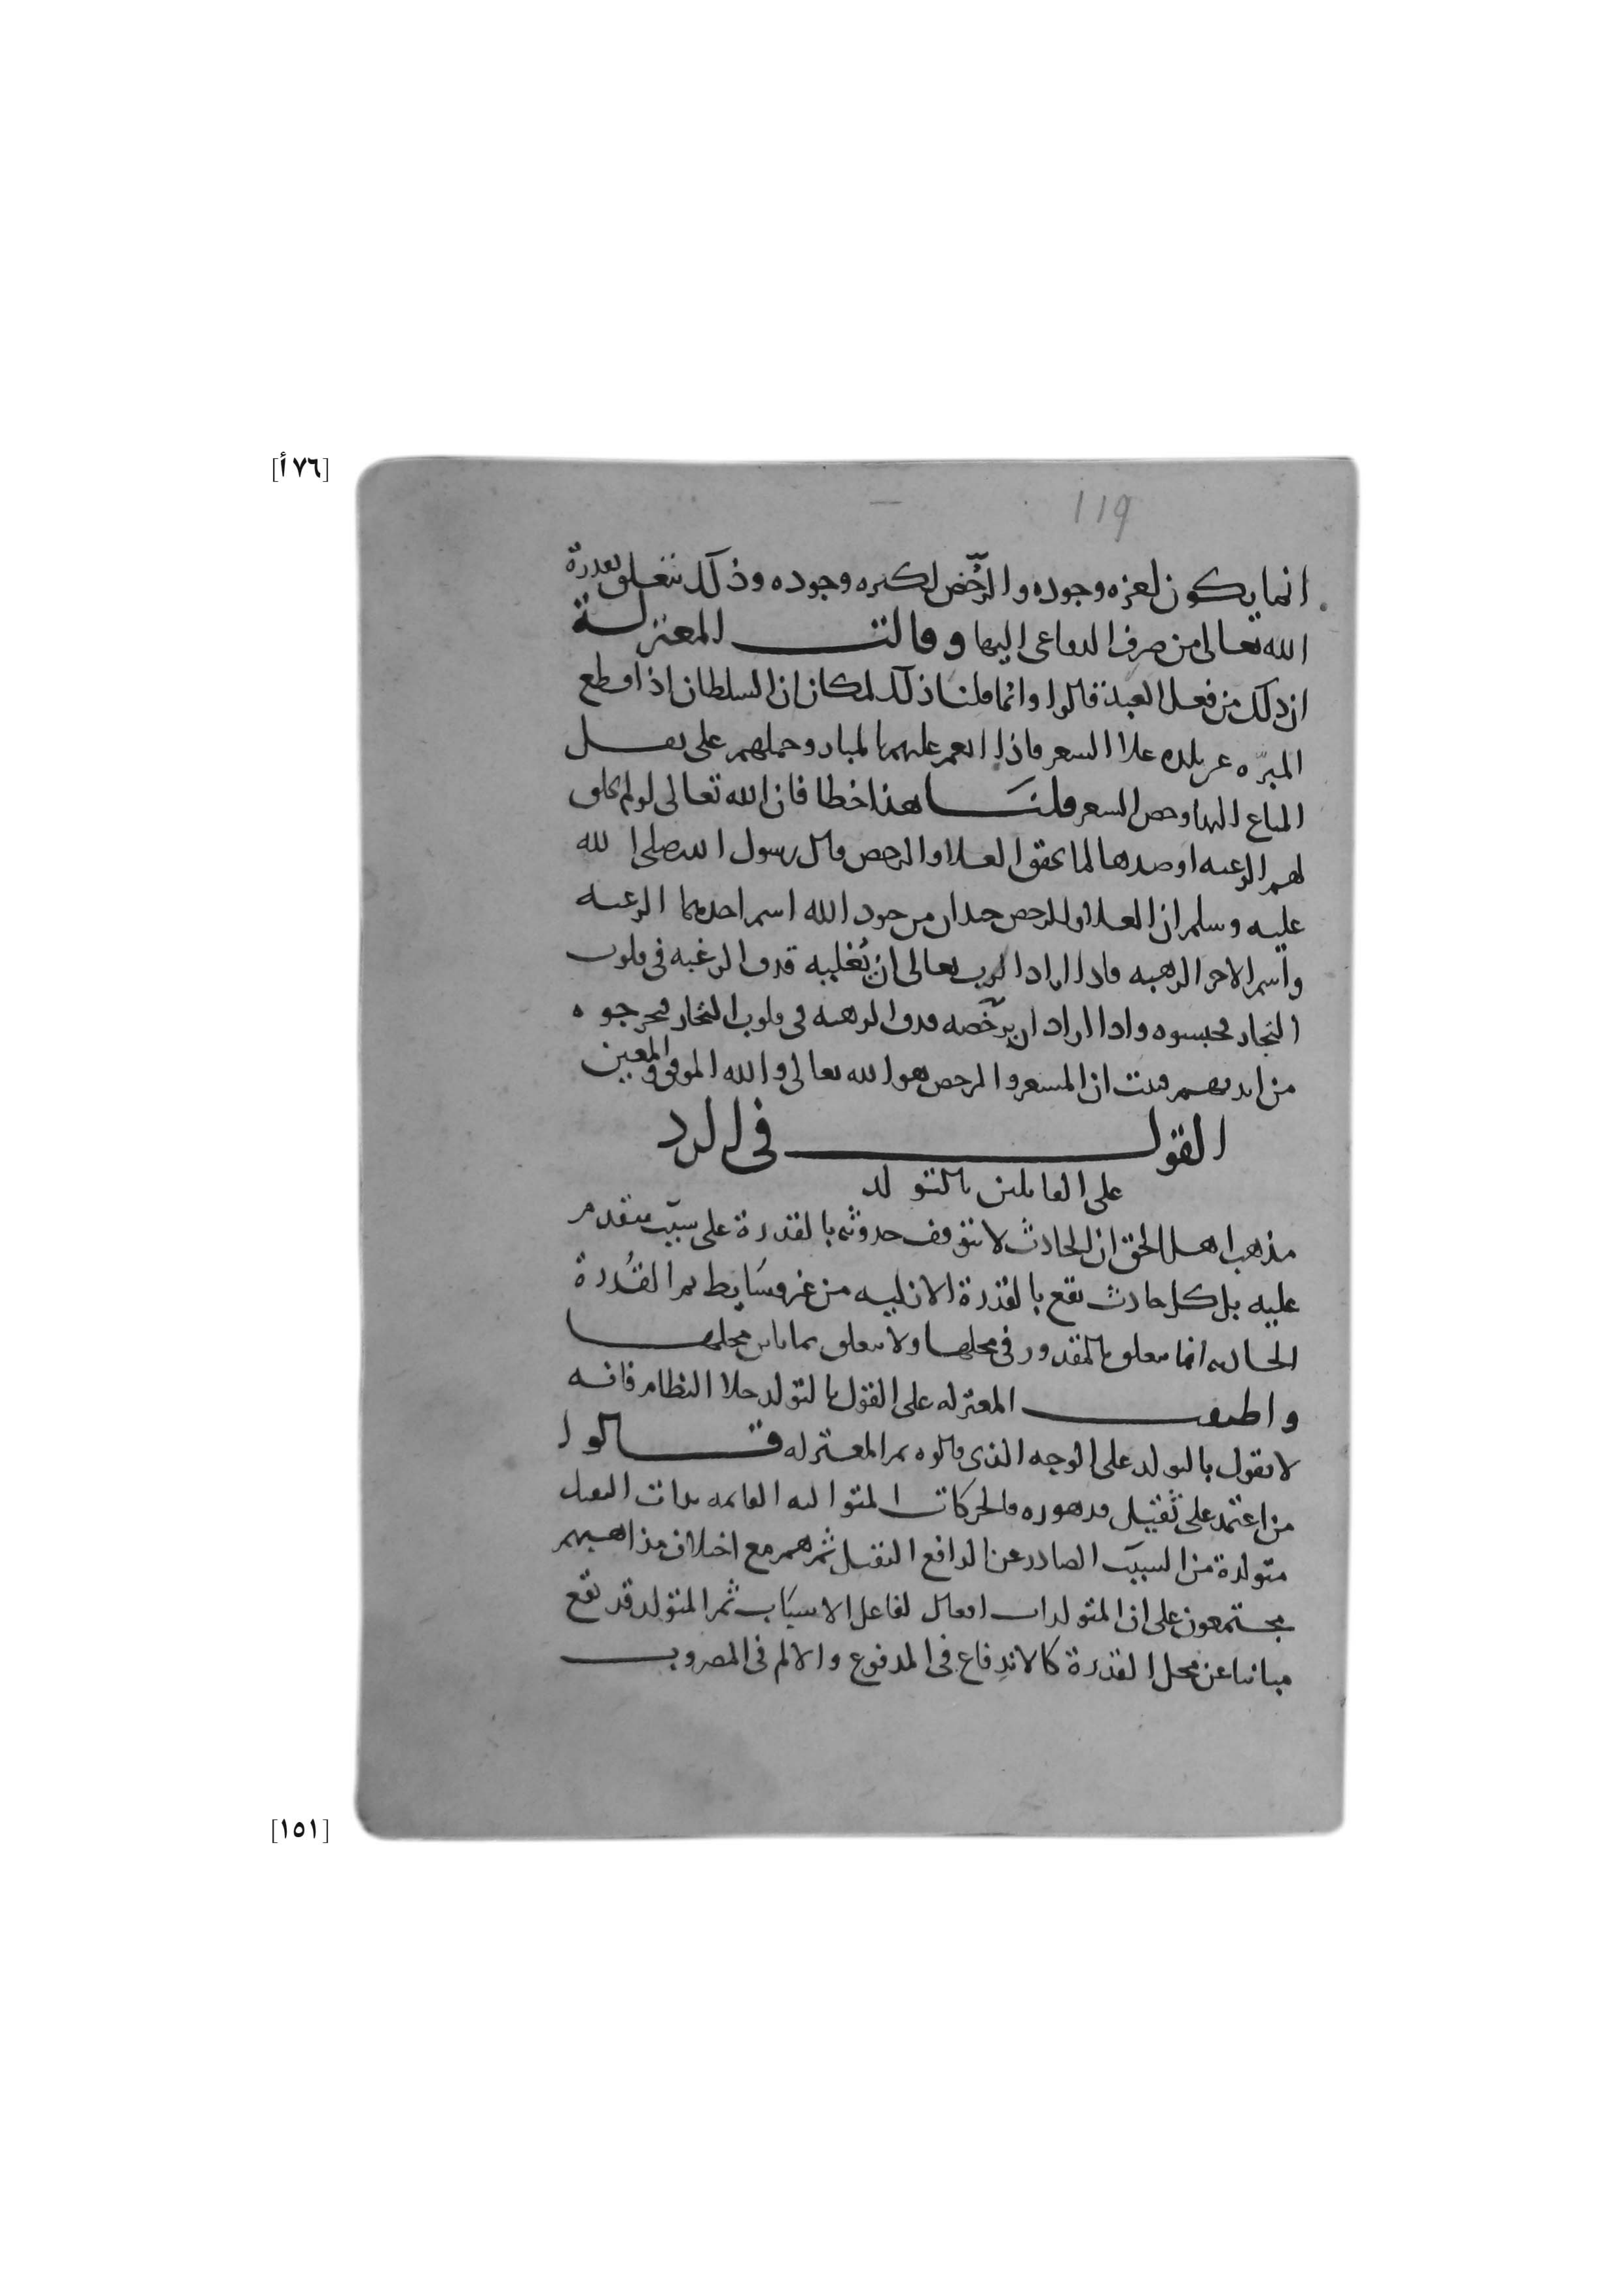 [٧٦أ]
119
انما يكون لعزه وجوده والرخص لكثره وجوده وذلك يتعلق بقدرة
الله تعالى من صرف الدواعى اليها وقالت المعتزلة
ان ذلك من فعل العبد قالوا وانما قلنا ذلك لمكان ان السلطان اذا قطع
الميره عن بلده غلا السعر فاذا انعم عليهم بالمباد وحملهم على نقل
المتاع اليها رخص السعر قلنا هذا خطا فان الله تعالى لو لم يخلق
لهم الرغبه او ضدها لما تحقق الغلا والرخص قال رسول الله صلى الله
عليه وسلم ان الغلا والرخص جندان من جنود الله اسم احدهما الرغبه
واسم الاخر الرهبه فاذا اراد الرب تعالى ان يُغليه قذف الرغبه فى قلوب
التجار فحبسوه واذا اراد ان يرخّصه قذف الرهبه فى قلوب التجار فخرجوه
من ايديهم فثبت ان المسعر والمرخص هو الله تعالى والله الموفق والمعين
القول فى الرد
على القايلين بالتولد
مذهب اهل الحق ان الحادث لا يتوقف حدوثه بالقدرة على سبب متقدم
عليه بل كل حادث يقع بالقدرة الازليه من غير وسايط ثم القُدرة
الحادثه انما تتعلق بالمقدور فى محلها ولا تتعلق بما باين محلها
واطبقت المعتزله على القول بالتولد خلا النظام فانه
لا يقول بالتولد على الوجه الذى قالوه ثم المعتزله قالوا
من اعتمد على ثقيل فدهوره فالحركات المتواليه القايمه بذات الثقيل
متولدة من السبب الصادر عن الدافع الثقيل ثم هم مع اختلاف مذاهبهم
مجتمعون على ان المتولدات افعال لفاعل الاسباب ثم المتولد قد يقع
مباينا عن محل القدرة كالاندِفاع فى المدفوع والالم فى المضروب
[١٥١]